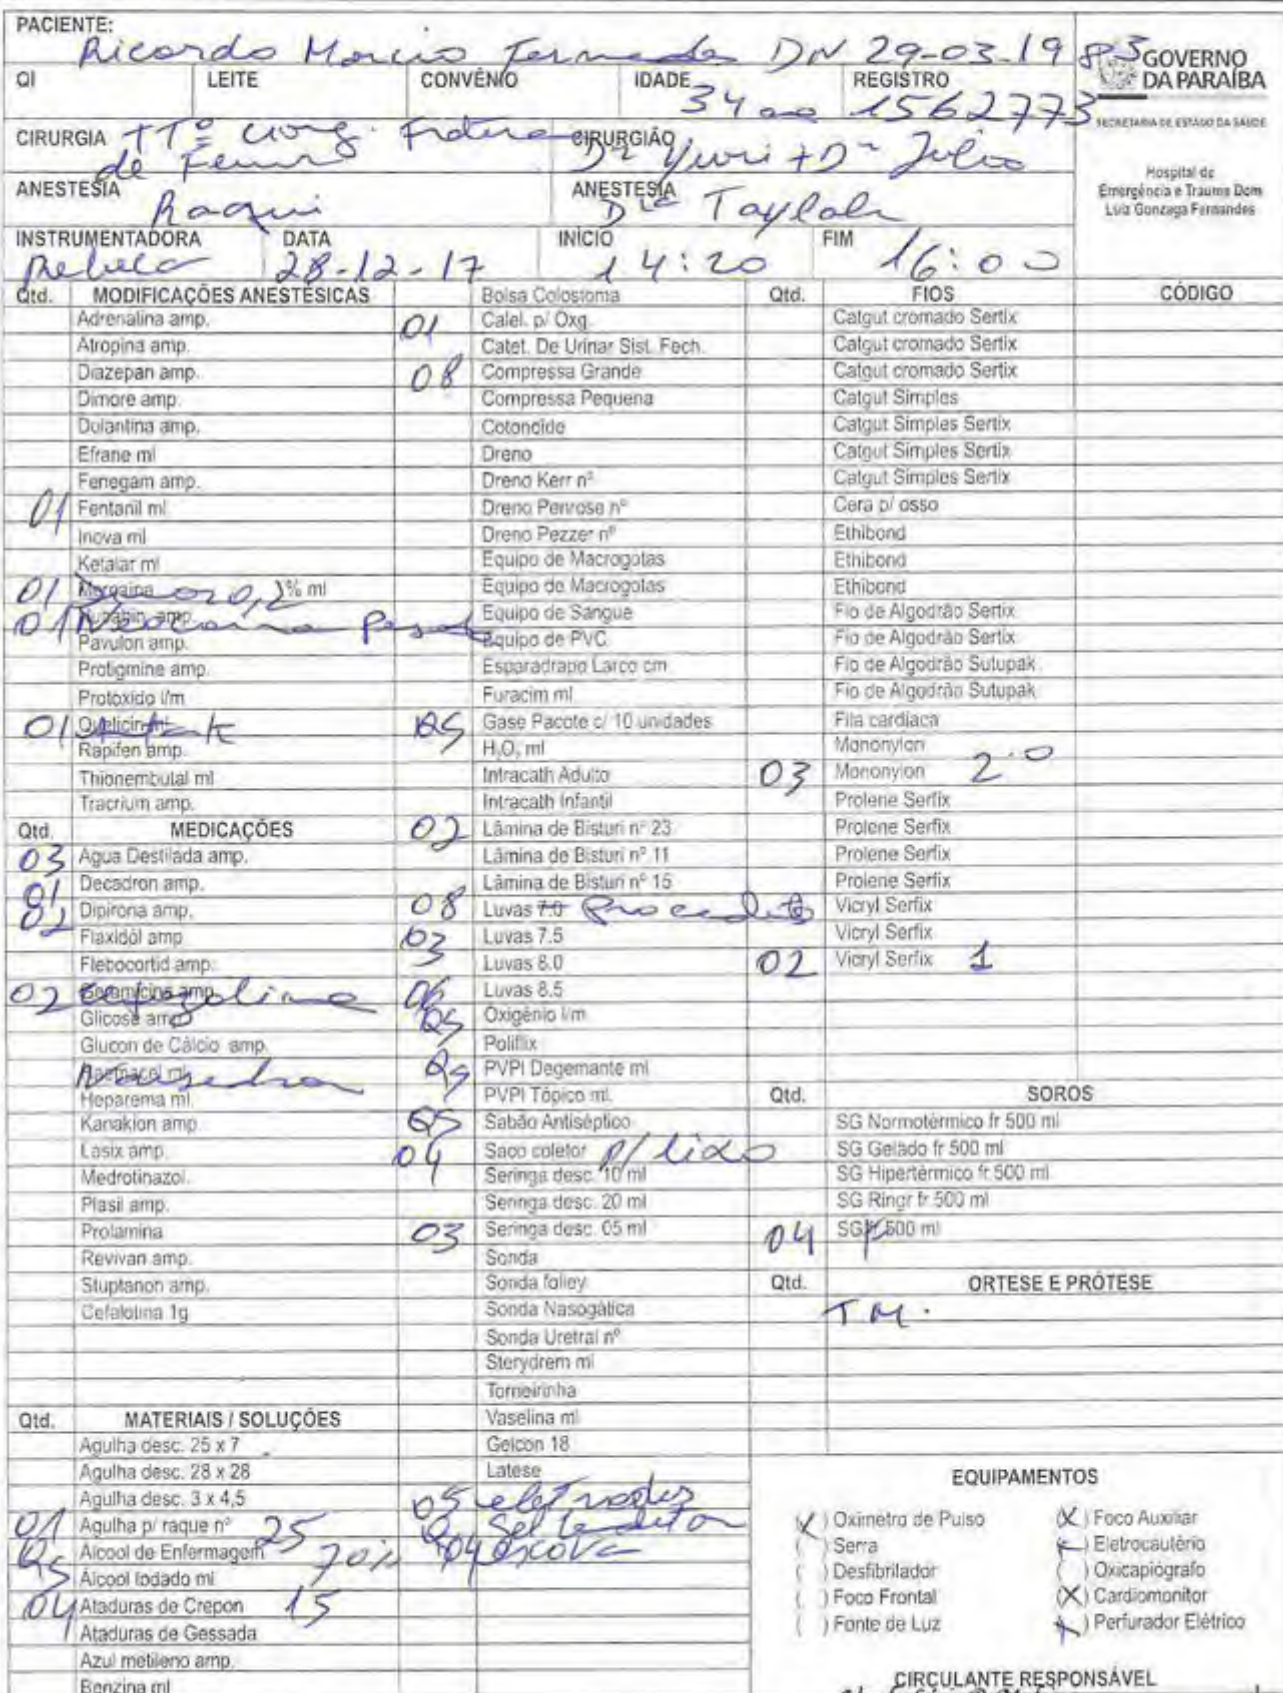 PACIENTE: Ricardo Marcio Fernandes DN 29-03-1983
GOVERNO DA PARAÍBA
SECRETARIA DE ESTADO DA SAÚDE
Hospital de
Emergência e Trauma Dom
Luiz Gonzaga Fernandes
QI LEITE CONVÊNIO IDADE 34 REGISTRO 1562773
CIRURGIA TTº cirurg. Fratura de Femur CIRURGIÃO Dr Yuri + Dr Julio
ANESTESIA Raqui ANESTESIA Drª
INSTRUMENTADORA Rebeca DATA 28-12-17 INÍCIO 14:20 FIM 16:00
Qtd. MODIFICAÇÕES ANESTÉSICAS
Adrenalina amp.
Atropina amp.
Diazepan amp.
Dimore amp.
Dolantina amp.
Efrane ml
Fenegam amp.
01 Fentanil ml
Inova ml
Ketalar ml
01 0,2% ml
01 Neocaina Pesada
Pavulon amp.
Protigmine amp.
Protoxido l/m
01 Quelicin ml
Rapifen amp.
Thionembutal ml
Tracrium amp.
Qtd. MEDICAÇÕES
03 Agua Destilada amp.
01 Decadron amp.
02 Dipirona amp.
Flaxidol amp
Flebocortid amp.
02 Cefazolina
Glicose amp
Glucon de Cálcio amp.
Nausedron
Heparema ml.
Kanakion amp
Lasix amp.
Medrotinazol.
Plasil amp.
Protamina
Revivan amp.
Stuptanon amp.
Cefalotina 1g
Qtd. MATERIAIS / SOLUÇÕES
Agulha desc. 25 x 7
Agulha desc. 28 x 28
Agulha desc. 3 x 4,5
01 Agulha p/ raque nº 25
Qs Álcool de Enfermagem 70%
Álcool Iodado ml
04 Ataduras de Crepon 15
Ataduras de Gessada
Azul metileno amp.
Benzina ml
Bolsa Colostomia
01 Catet. p/ Oxg.
Catet. De Urinar Sist. Fech.
08 Compressa Grande
Compressa Pequena
Cotonoide
Dreno
Dreno Kerr nº
Dreno Penrose nº
Dreno Pezzer nº
Equipo de Macrogotas
Equipo de Macrogotas
Equipo de Sangue
Equipo de PVC
Esparadrapo Larco cm
Furacim ml
QS Gase Pacote c/ 10 unidades
H₂O₂ ml
Intracath Adulto
Intracath Infantil
02 Lâmina de Bisturi nº 23
Lâmina de Bisturi nº 11
Lâmina de Bisturi nº 15
08 Luvas 7.0
03 Luvas 7.5
Luvas 8.0
06 Luvas 8.5
QS Oxigênio l/m
Poliflix
QS PVPI Degemante ml
PVPI Tópico ml.
QS Sabão Antiséptico
04 Saco coletor p/ lixo
Seringa desc. 10 ml
Seringa desc. 20 ml
03 Seringa desc. 05 ml
Sonda
Sonda folley
Sonda Nasogática
Sonda Uretral nº
Sterydrem ml
Torneirinha
Vaselina ml
Gelcon 18
Latese
05 eletrodos
04 escova
Qtd. FIOS CÓDIGO
Catgut cromado Sertix
Catgut cromado Sertix
Catgut cromado Sertix
Catgut Simples
Catgut Simples Sertix
Catgut Simples Sertix
Catgut Simples Sertix
Cera p/ osso
Ethibond
Ethibond
Ethibond
Fio de Algodrão Sertix
Fio de Algodrão Sertix
Fio de Algodrão Sutupak
Fio de Algodrão Sutupak
Fita cardiaca
Mononylon
03 Mononylon 2.0
Prolene Serfix
Prolene Serfix
Prolene Serfix
Prolene Serfix
Vicryl Serfix
Vicryl Serfix
02 Vicryl Serfix 1
Qtd. SOROS
SG Normotérmico fr 500 ml
SG Gelado fr 500 ml
SG Hipertérmico fr 500 ml
SG Ringr fr 500 ml
04 SG 500 ml
Qtd. ORTESE E PRÓTESE
T M.
EQUIPAMENTOS
(X) Oxímetro de Pulso (X) Foco Auxiliar
( ) Serra (X) Eletrocautério
( ) Desfibrilador ( ) Oxicapiógrafo
( ) Foco Frontal (X) Cardiomonitor
( ) Fonte de Luz (X) Perfurador Elétrico
CIRCULANTE RESPONSÁVEL